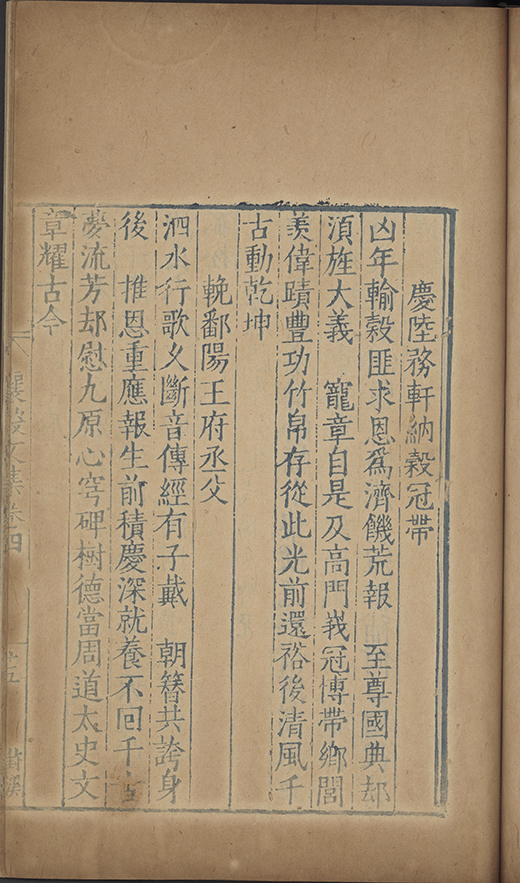 慶陸務軒納穀冠帶
凶年輸穀匪求恩爲濟饑荒報 至尊國典却
湏旌大義 寵章自是及高門峩冠博帶鄉閭
羙偉蹟豐功竹帛存從此光前還裕後清風千
古動乾坤
輓鄱陽王府丞父
泗水行歌久斷音傳經有子戴 朝簮共誇身
後 推恩重應報生前積慶深就養不回千
夢流芳却慰九原心穹碑樹德當周道太史文
章耀古今
文集卷四